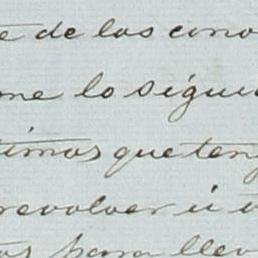 e de las cinc
me lo sigui
timos que teng
revolver ú o
tos para llev